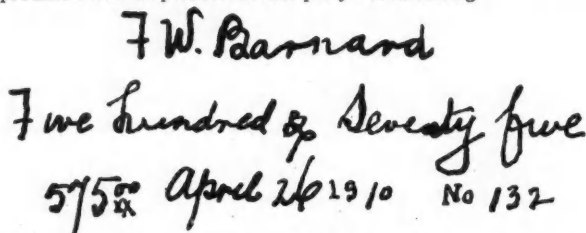 F W. Barnard
Five hundred & Seventy five
575 00/xx April 26 1910 No 132